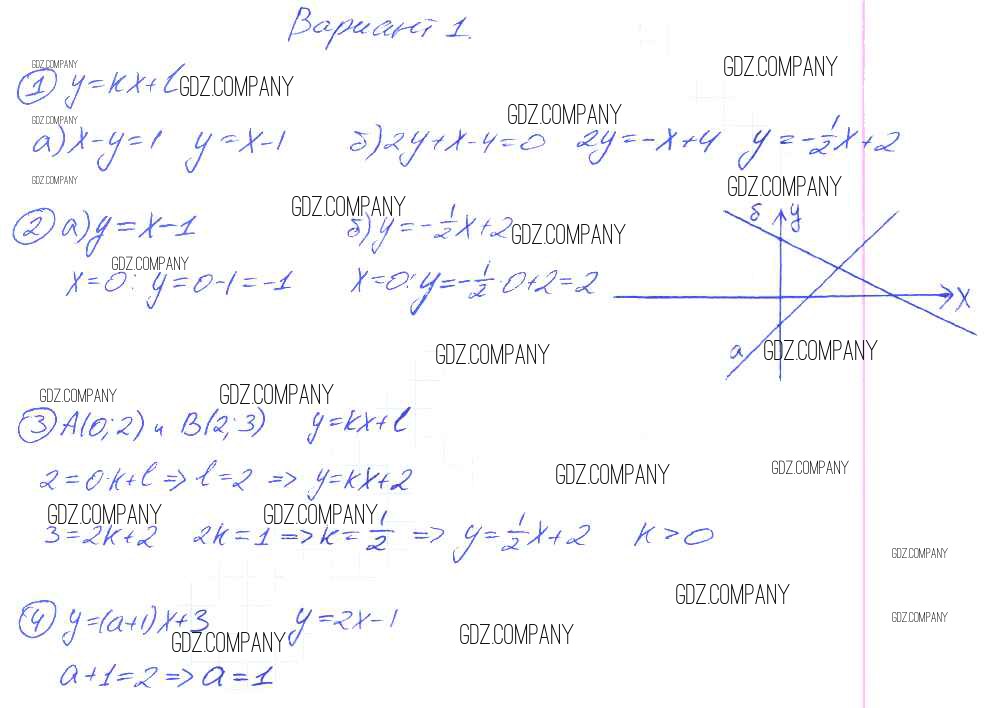 Вариант 1.
GDZ.COMPANY
GDZ.COMPANY
① y=kx+l GDZ.COMPANY
GDZ.COMPANY
GDZ.COMPANY
а) x-y=1 y=x-1 б) 2y+x-4=0 2y=-x+4 y=-1/2x+2
GDZ.COMPANY
GDZ.COMPANY
GDZ.COMPANY
② а) y=x-1 б) y=-1/2x+2 GDZ.COMPANY
б y
GDZ.COMPANY
x=0: y=0-1=-1 x=0: y=-1/2·0+2=2
x
а GDZ.COMPANY
GDZ.COMPANY
GDZ.COMPANY GDZ.COMPANY
③ A(0;2) и B(2;3) y=kx+l
GDZ.COMPANY GDZ.COMPANY
2=0·k+l=>l=2 => y=kx+2
GDZ.COMPANY GDZ.COMPANY
3=2k+2 2k=1=>k=1/2 => y=1/2x+2 k>0
GDZ.COMPANY
GDZ.COMPANY
④ y=(a+1)x+3 y=2x-1
GDZ.COMPANY
GDZ.COMPANY GDZ.COMPANY
a+1=2=>a=1